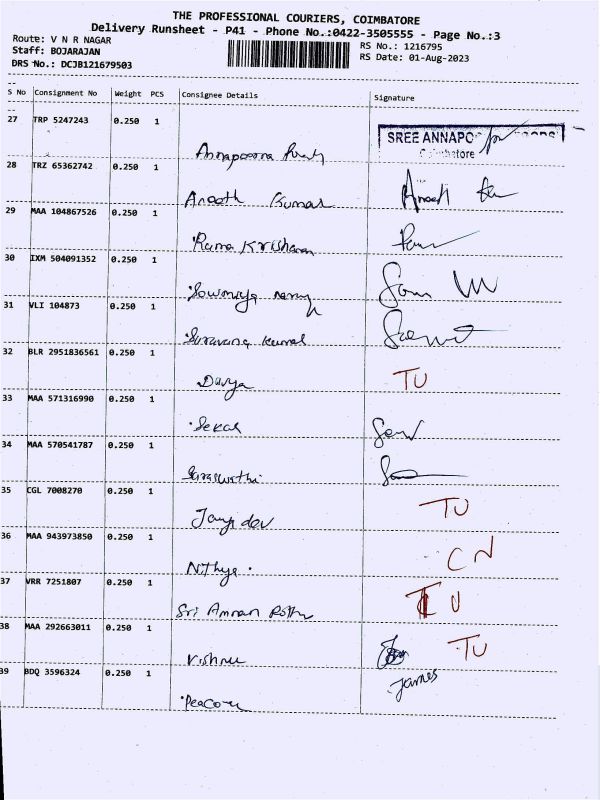 THE PROFESSIONAL COURIERS, COIMBATORE
Delivery Runsheet - P41 - Phone No.:0422-3505555 - Page No.:3
Route: V N R NAGAR
RS No.: 1216795
Staff: BOJARAJAN
RS Date: 01-Aug-2023
DRS No.: DCJB121679503
S No Consignment No Weight PCS Consignee Details Signature
27 TRP 5247243 0.250 1
SREE ANNAPO
Annapoorna
28 TRZ 65362742 0.250 1
Aneeth Kumar
29 MAA 104867526 0.250 1
Rama Krishanan
30 IXM 504091352 0.250 1
Sowmiya
31 VLI 104873 0.250 1
Saravana Kumar
32 BLR 2951836561 0.250 1
Divya TU
33 MAA 571316990 0.250 1
Sekar
34 MAA 570541787 0.250 1
Saraswathi
35 CGL 7008270 0.250 1
TU
36 MAA 943973850 0.250 1
Nithya CN
37 VRR 7251807 0.250 1
Sri Amman TU
38 MAA 292663011 0.250 1
Vishnu TU
39 BDQ 3596324 0.250 1
James